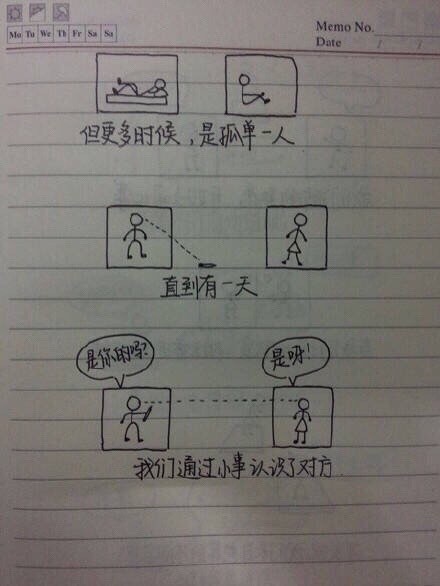 Memo No.
Mo Tu We Th Fr Sa Sa
Date / /
但更多时候，是孤单一人
直到有一天
是你的吗？
是呀！
我们通过小事认识了对方